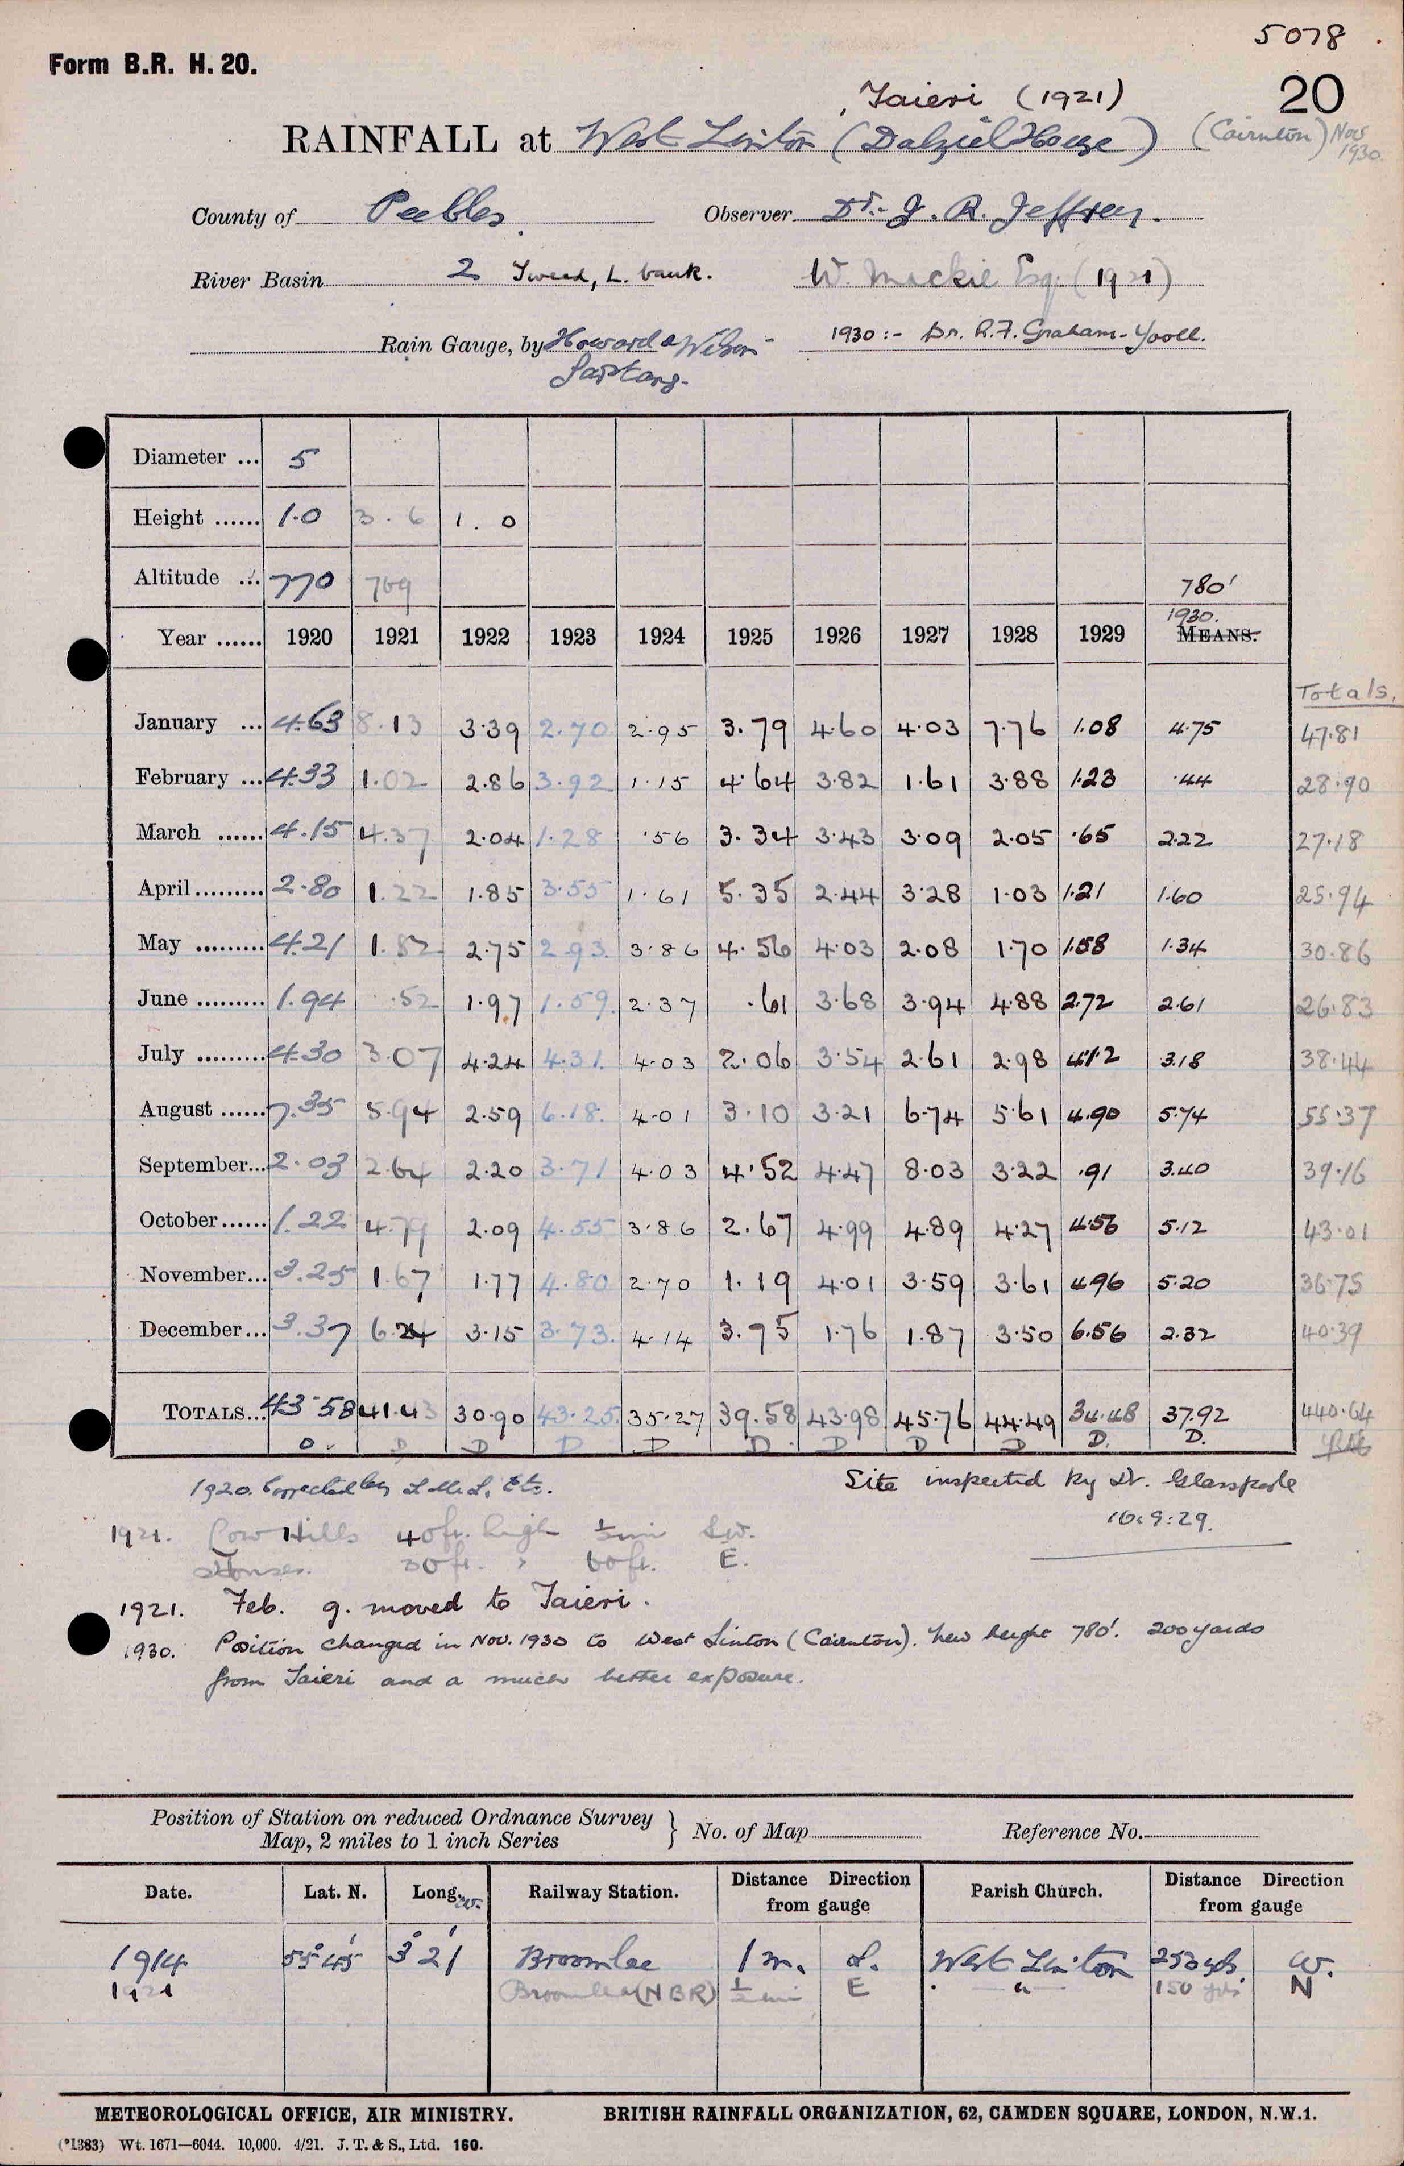 5078
Form B.R. H. 20.
20
Taieri (1921)
RAINFALL at West Linton (Dalziel House) (Cairnton) Nov 1930.
County of Peebles. Observer Dr. J. R. Jeffrey.
River Basin 2 Tweed, L. bank. W. Mackie Esq. (1921)
Rain Gauge, by Howard & Wilson 1930:- Dr. R.F. Graham-Yooll.
Diameter ... 5
Height ...... 1.0 3.6 1.0
Altitude ... 770 769 780'
1930.
Year ...... 1920 1921 1922 1923 1924 1925 1926 1927 1928 1929 MEANS.
Totals.
January ... 4.63 8.13 3.39 2.70 2.95 3.79 4.60 4.03 7.76 1.08 4.75 47.81
February ... 4.33 1.02 2.86 3.92 1.15 4.64 3.82 1.61 3.88 1.23 .44 28.90
March ...... 4.15 4.37 2.04 1.28 .56 3.34 3.43 3.09 2.05 .65 2.22 27.18
April ......... 2.80 1.22 1.85 3.55 1.61 5.35 2.44 3.28 1.03 1.21 1.60 25.94
May ......... 4.21 1.82 2.75 2.93 3.86 4.56 4.03 2.08 1.70 1.58 1.34 30.86
June ......... 1.94 .52 1.97 1.59 2.37 .61 3.68 3.94 4.88 2.72 2.61 26.83
July ......... 4.30 3.07 4.24 4.31 4.03 2.06 3.54 2.61 2.98 4.12 3.18 38.44
August ...... 7.35 5.94 2.59 6.18 4.01 3.10 3.21 6.74 5.61 4.90 5.74 55.37
September ... 2.03 2.64 2.20 3.71 4.03 4.52 4.47 8.03 3.22 .91 3.40 39.16
October ...... 1.22 4.79 2.09 4.55 3.86 2.67 4.99 4.89 4.27 4.56 5.12 43.01
November ... 3.25 1.67 1.77 4.80 2.70 1.19 4.01 3.59 3.61 4.96 5.20 36.75
December ... 3.37 6.24 3.15 3.73 4.14 3.75 1.76 1.87 3.50 6.56 2.32 40.39
TOTALS ... 43.58 41.43 30.90 43.25 35.27 39.58 43.98 45.76 44.49 34.48 37.92 440.64
D. D D D D D. D D D D. D.
1920. Corrected by
Site inspected by Dr. Glasspoole
16:9:29.
1921. Low Hills 40ft. high ½mi S.W.
Houses. 30ft. " 60ft. E.
1921. Feb. g. moved to Taieri.
1930. Position changed in Nov. 1930 to West Linton (Cairnton). New height 780'. 200 yards
from Taieri and a much better exposure.
Position of Station on reduced Ordnance Survey
Map, 2 miles to 1 inch Series } No. of Map Reference No.
Date. Lat. N. Long. W. Railway Station. Distance Direction from gauge Parish Church. Distance Direction from gauge
1914 55° 45' 3° 21' Broomlee 1 m. S. West Linton 250 yds. W.
1921 Broomlee (NBR) ½ mi E " 150 yds N
METEOROLOGICAL OFFICE, AIR MINISTRY. BRITISH RAINFALL ORGANIZATION, 62, CAMDEN SQUARE, LONDON, N.W.1.
(*1383) Wt. 1671—6044. 10,000. 4/21. J. T. & S., Ltd. 160.